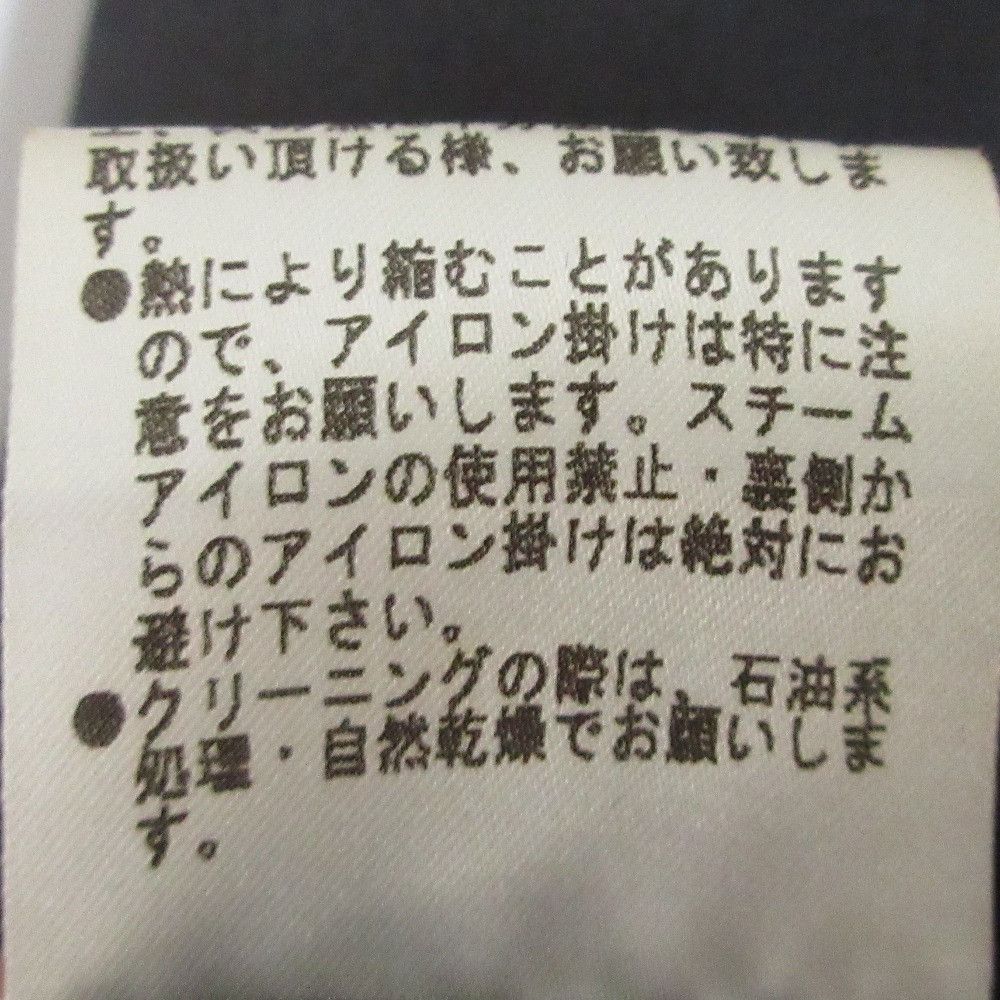 取扱い頂ける様、お願い致しま
す。
●熱により縮むことがあります
ので、アイロン掛けは特に注
意をお願いします。スチーム
アイロンの使用禁止・裏側か
らのアイロン掛けは絶対にお
避け下さい。
●クリーニングの際は、石油系
処理・自然乾燥でお願いしま
す。